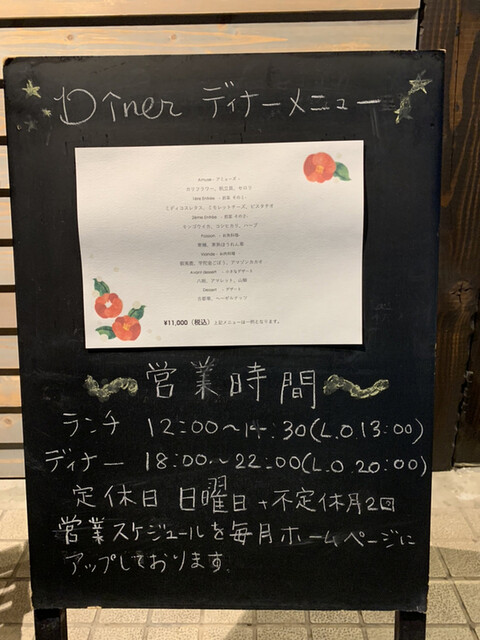 Dîner ディナーメニュー
Amuse - アミューズ -
カリフラワー、帆立貝、セロリ
1ère Entrée - 前菜 その1 -
2ème Entrée - 前菜 その2 -
Poisson - お魚料理 -
Viande - お肉料理 -
Avant dessert - 小さなデザート
八朔、アマレット、山椒
Dessert - デザート
¥11,000（税込）上記メニューは一例となります。
営業時間
ランチ 12:00〜14:30(L.O.13:00)
ディナー 18:00〜22:00(L.O.20:00)
定休日 日曜日+不定休月2回
営業スケジュールを毎月ホームページに
アップしております。